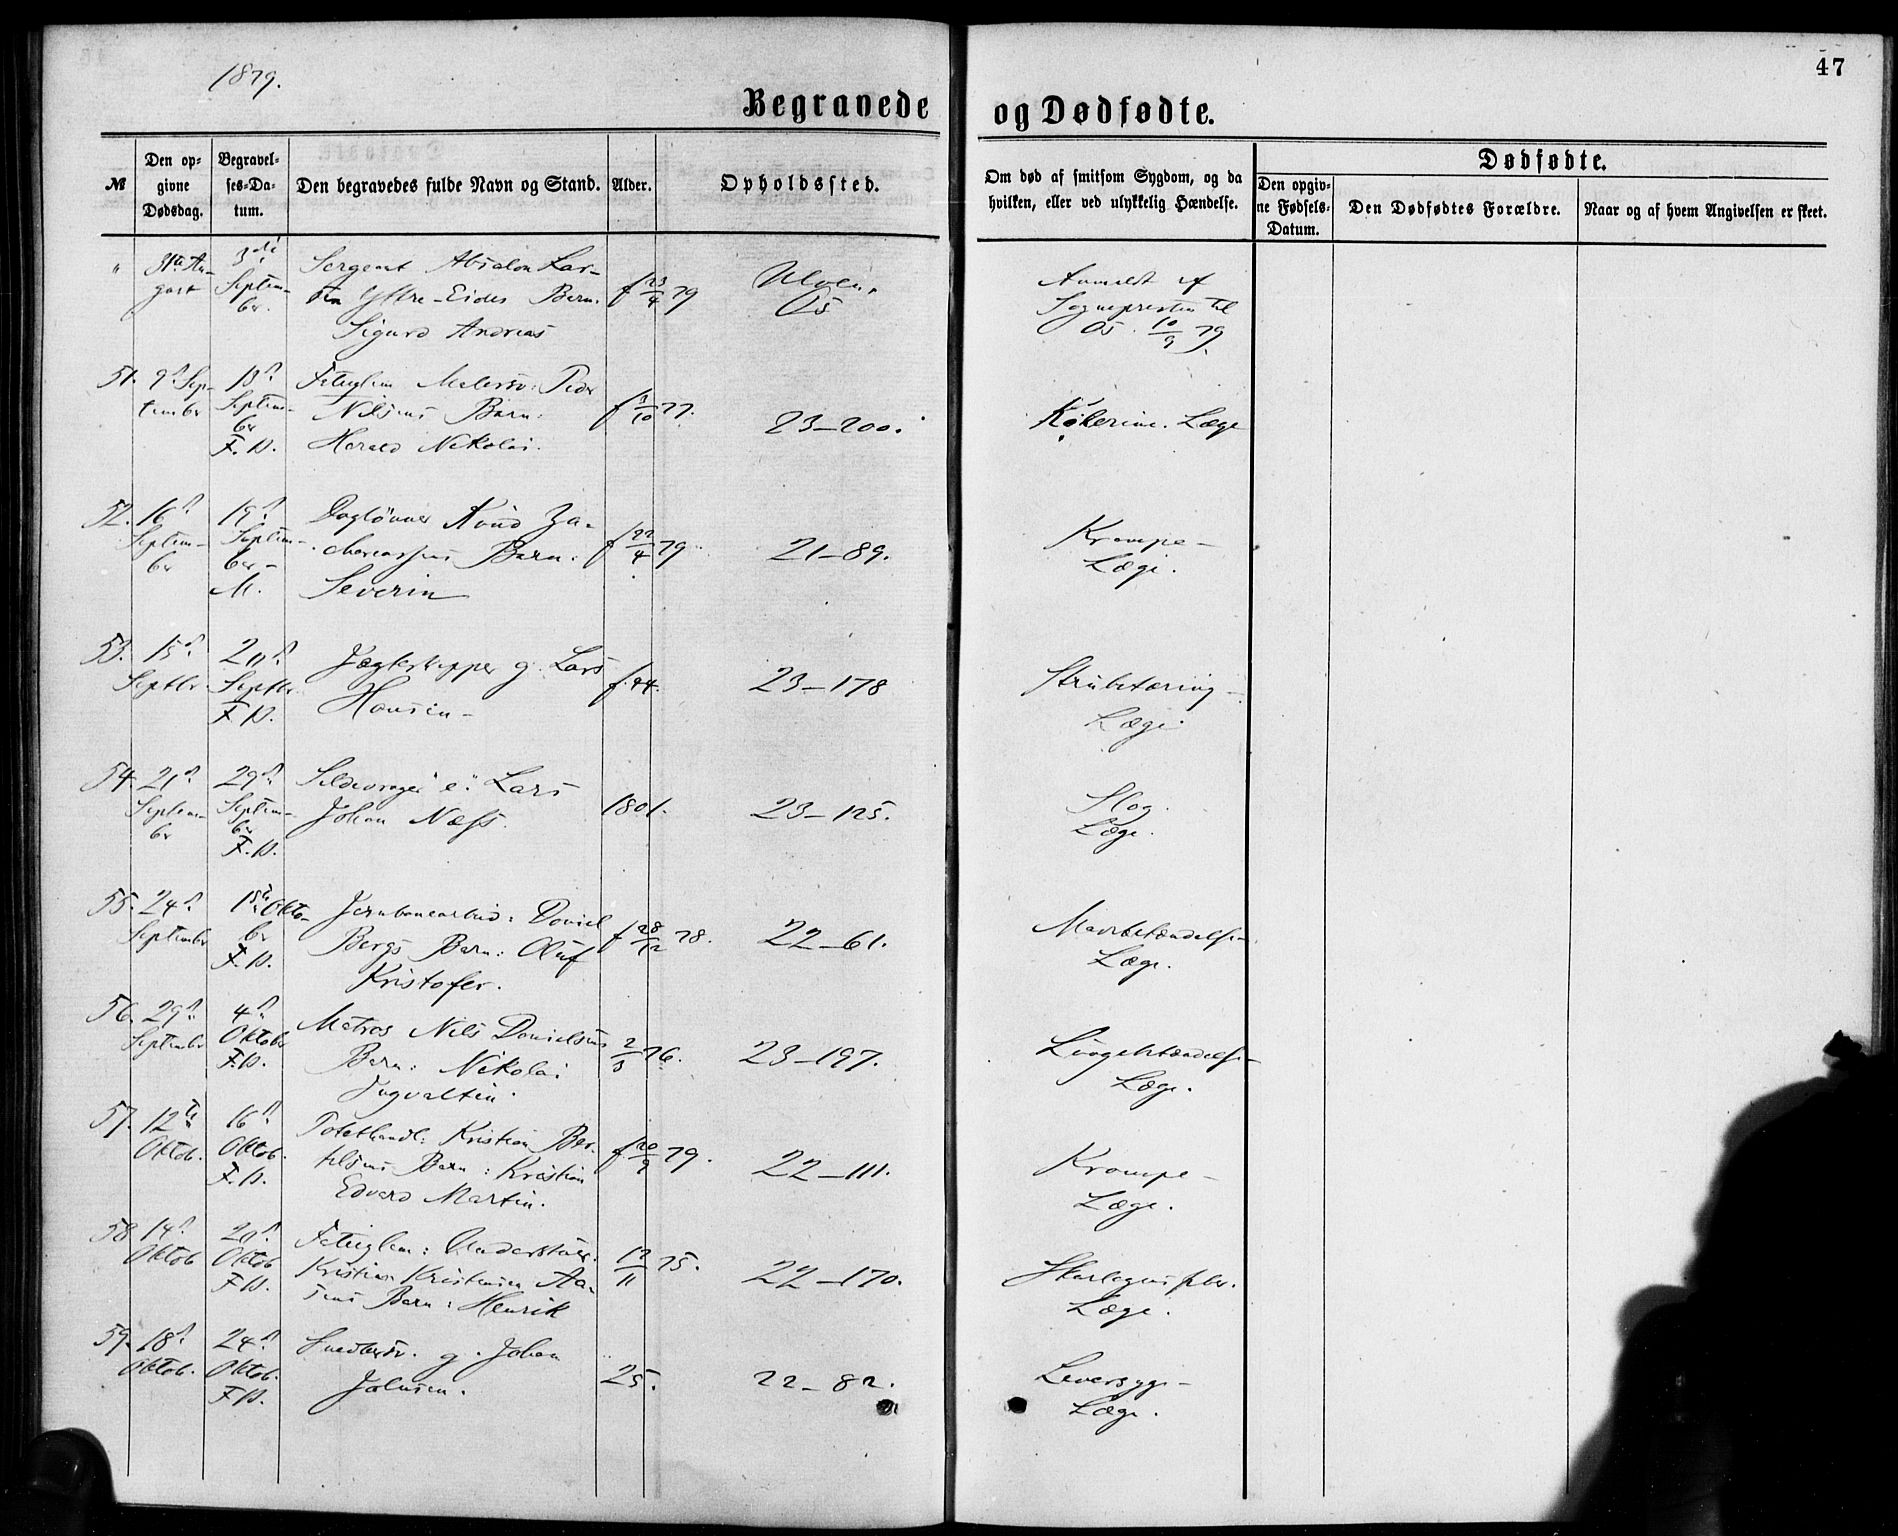 1879.
47
Begravede og Dødfødte.
№
Den op-
givne
Dødsdag.
Begravel-
ses-Da-
tum.
Den begravedes fulde Navn og Stand.
Alder.
Opholdssted.
Om død af smitsom Sygdom, og da
hvilken, eller ved ulykkelig Hændelse.
Dødfødte.
Den opgiv-
ne Fødsels-
Datum.
Den Dødfødtes Forældre.
Naar og af hvem Angivelsen er skeet.
" 31te Au-
gust
3die
Septem-
ber.
Sergeant Absalon Lar-
sen Ystre-Eides Barn:
Sigurd Andreas
f 23/4 79
Ulven,
Os
Anmeldt af
Sognepresten til
Os. 10/9 79.
51. 9d Sep-
tember
13d
Septem-
ber
F. P.
Malersv: Peder
Nilsens Barn:
Harald Nikolai.
f 3/10 77.
23–200.
Læge
52. 16d
Septem-
ber
19d
Septem-
ber –
M.
Daglønner Knud Za-
chariassens Barn:
Severin
f 22/4 79
21–89.
Krampe –
Læge.
53. 15d
Septbr.
20d
Septbr.
F. P.
Jægteskipper g. Lars
Hansen –
f. 44.
23–178
Strubetæring –
Læge.
54. 21d
Septem-
ber
29d
Septem-
ber
F. P.
Sildevrager e: Lars
Johan Næss
1801.
23–125.
Slag.
Læge.
55. 24d
September
1ste Okto-
ber
F. P.
Jernbanearbeid: Daniel
Bergs Barn: Oluf
Kristofer.
f 28/12 78.
22–61.
Mavebetændelse –
Læge.
56. 29d
September
4d
Oktober
F. P.
Matros Nils Danielsens
Barn: Nikolai
Ingvaltin.
2/3 76.
23–197.
Lungebetændelse –
Læge.
57. 12te
Oktob.
16d
Oktob.
F. P.
Potethandl: Kristian Ber-
telsens Barn: Kristian
Edvard Martin.
f 20/9 79.
22–111.
Krampe –
Læge.
58 14d
Oktob.
20d
Oktob
F. P.
Kristian Kristensen Aa-
sens Barn: Henrik
12/11 75.
22–170.
Skarlagensfeber.
Læge.
59. 18d
Oktob.
24d
Oktob.
F. P.
Snedkersv. g. Johan
Johnsen.
25.
22–82.
Leversyge –
Læge.